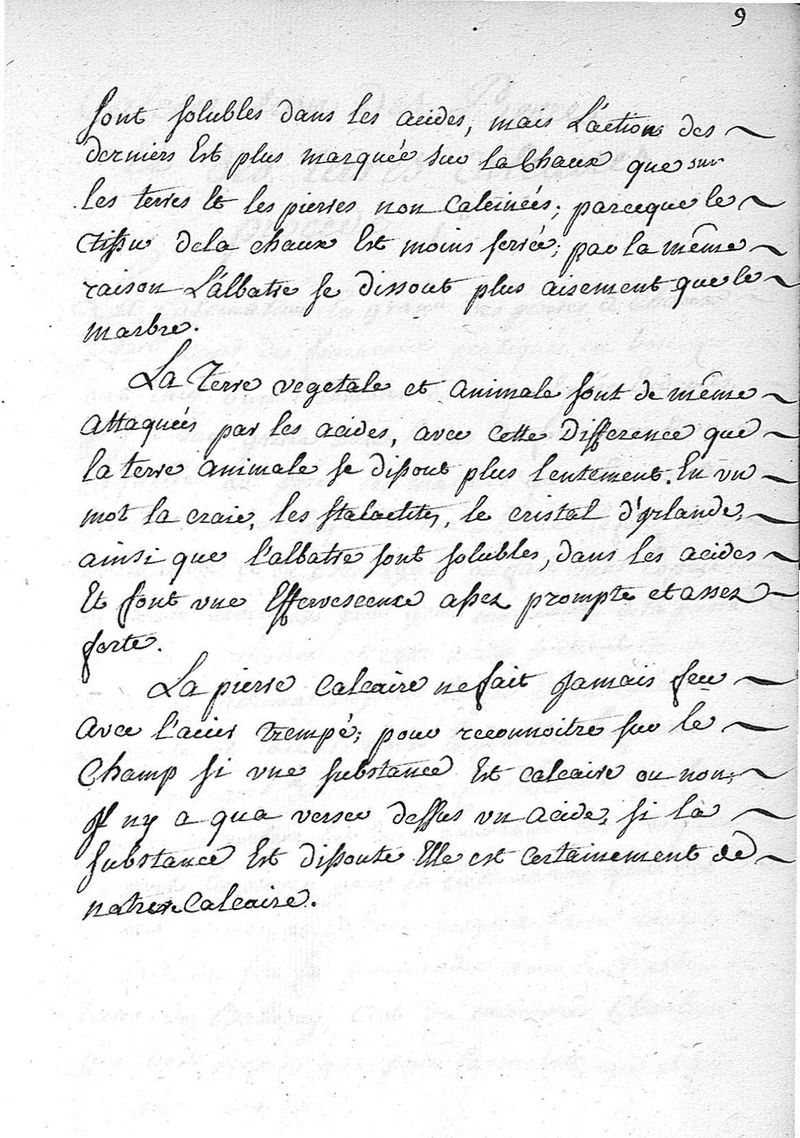 9
sont solubles dans les acides, mais L'action des
derniers Est plus marquée sur la Chaux que sur
les terres Et les pierres non Calcinées; parceque le
tissu dela chaux Est moins serré; par la même
raison L'albatre se dissout plus aisement que le
marbre.
La Terre vegetale et animale sont de même
attaqueés par les acides, avec cette Difference que
la terre animale se dissout plus lentement. En un
mot la craie, les stalactites, le cristal d'yrlande,
ainsi que l'albatre sont solubles, dans les acides
Et font une Effervescence assez prompte et assez
forte.
La pierre calcaire ne fait Jamais feu
avec l'acier trempé; pour reconnoitre sur le
Champ si une substance Est calcaire ou non,
Il ny a qua verser dessus un acide, si la
substance Est dissoute Elle est certainement de
nature Calcaire.